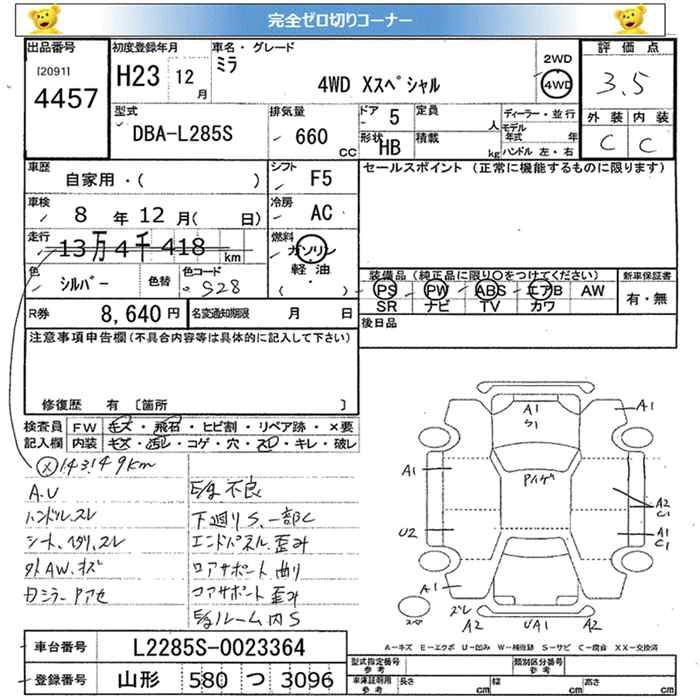 完全ゼロ切りコーナー
出品番号
[2091]
4457
初度登録年月
H23 12月
車名・グレード
ミラ
4WD Xスペシャル
2WD
4WD
評価点
3.5
外装 内装
C C
型式
DBA-L285S
排気量
660 CC
ドア 5
形状 HB
定員 人
積載 kg
ディーラー・並行
モデル年式 年
ハンドル 左・右
車歴
自家用・( )
シフト F5
セールスポイント (正常に機能するものに限ります)
車検
8年 12月( 日)
冷房 AC
走行
13万4千418 km
燃料
ガソリン
軽油
・
( )
色
シルバー
色替
色コード
S28
装備品 (純正品に限り○をつけてください)
PS PW ABS エアB AW
SR ナビ TV カワ
新車保証書
有・無
R券 8,640円
名変通知期限 月 日
後日品
注意事項申告欄(不具合内容等は具体的に記入して下さい)
修復歴 有 〔箇所 〕
検査員記入欄
FW キズ・飛石・ヒビ割・リペア跡・×要
内装 キズ・汚レ・コゲ・穴・スレ・キレ・破レ
143149km
A.U
ハンドル.スレ
シート、ヘタリ、スレ
外AW.キズ
E/g不良
下廻りS.一部C
エンドパネル歪み
コアサポート曲り
コアサポート歪み
E/gルーム内S
A1
A1
A1
A2
C1
U2
A1
C1
A1
スペア
ズレ
A2
UA1
A2
車台番号 L2285S-0023364
登録番号 山形 580 つ 3096
A−キズ E−エクボ U−凹み W−補修跡 S−サビ C−腐食 XX−交換済
型式指定番号 参考
類別区分番号 参考
車庫証明用 参考 長さ cm 幅 cm 高さ cm